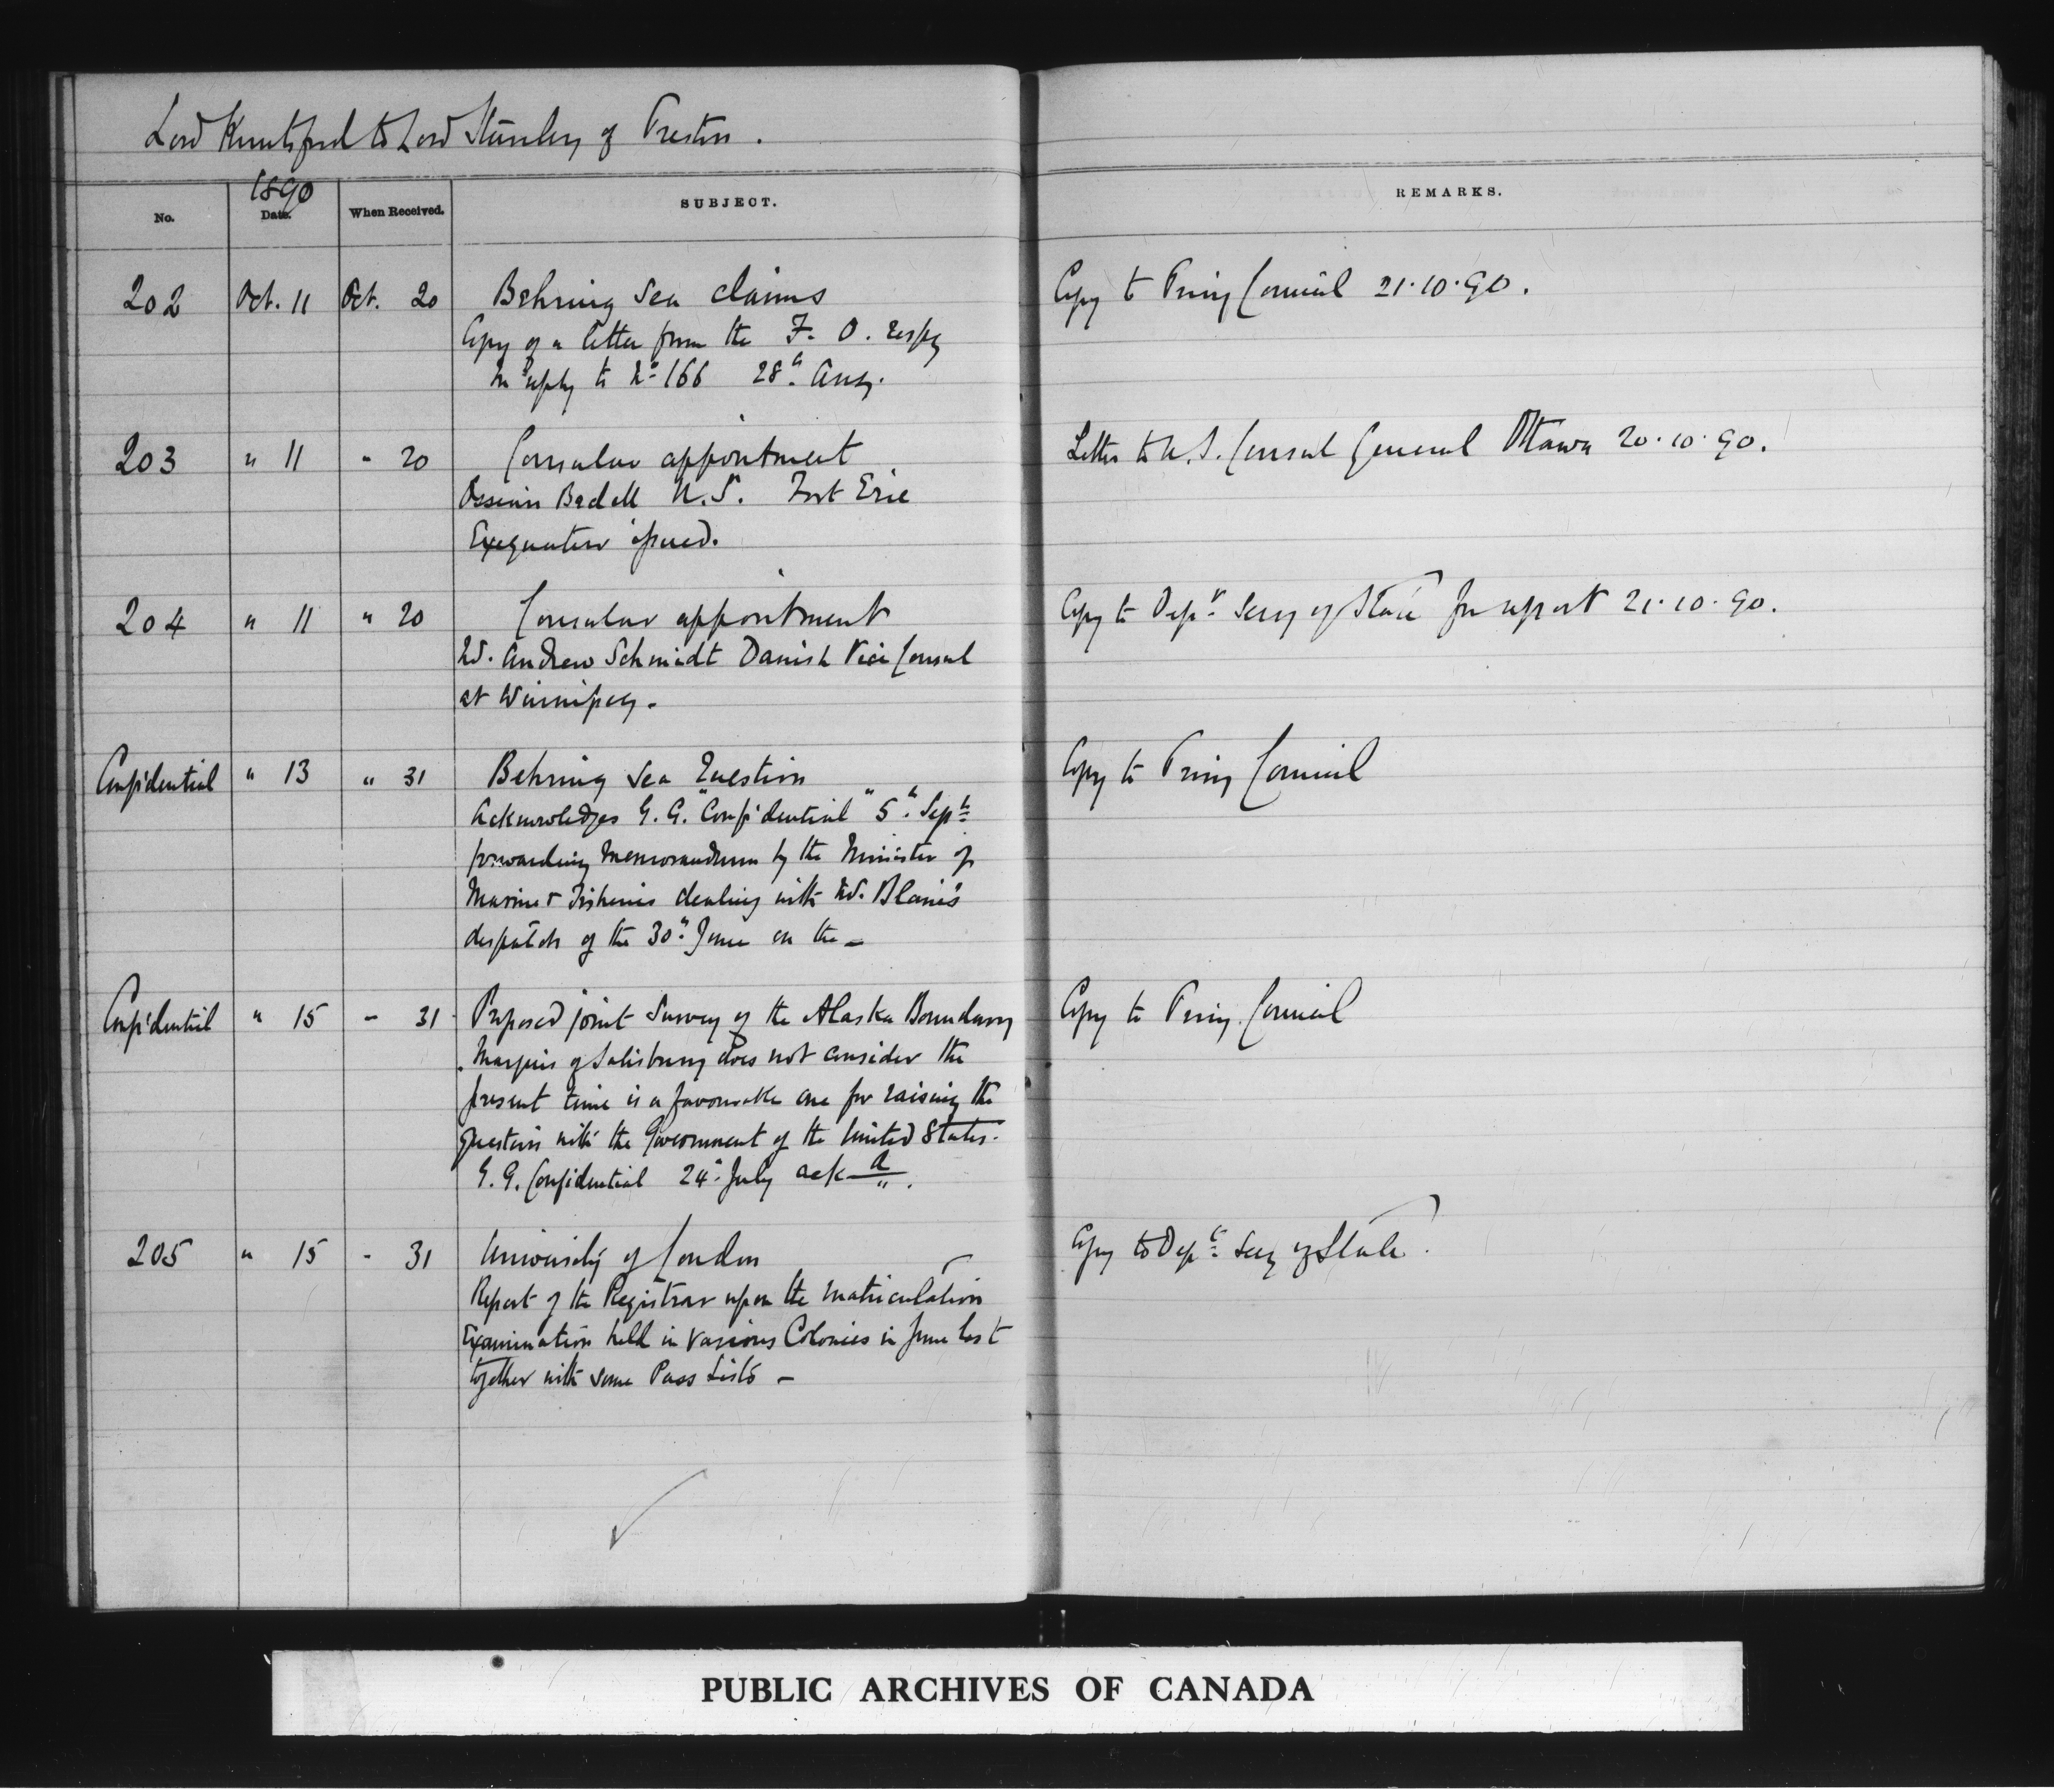 Lord Knutsford to Lord Stanley of Preston.
1890
No. Date. When Received. SUBJECT. REMARKS.
202 Oct. 11 Oct. 20 Behring Sea claims Copy to Privy Council 21.10.90.
Copy of a letter from the F. O. respg
In reply to No 166 28th Aug.
203 " 11 " 20 Consular appointment Letter to U.S. Consul General Ottawa 20.10.90.
Ossian Bedell U.S. Fort Erie
Exequatur issued.
204 " 11 " 20 Consular appointment Copy to Depy Secy of State for report 21.10.90.
Mr. Andrew Schmidt Danish Vice Consul
at Winnipeg.
Confidential " 13 " 31 Behring Sea Question Copy to Privy Council
Acknowledges G. G. "Confidential" 5th Septr
forwarding Memorandum by the Minister of
Marine & Fisheries dealing with Mr. Blaine's
despatch of the 30th June on the –
Confidential " 15 " 31 Proposed joint Survey of the Alaska Boundary Copy to Privy Council
Marquis of Salisbury does not consider the
present time is a favourable one for raising the
question with the Government of the United States.
G. G. Confidential 24th July ackd.
205 " 15 " 31 University of London Copy to Depy Secy of State.
Report of the Registrar upon the Matriculation
Examination held in various Colonies in June last
together with some Pass Lists –
PUBLIC ARCHIVES OF CANADA